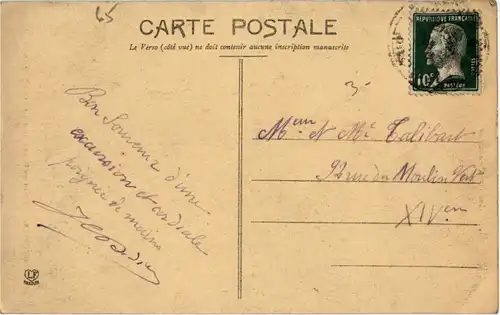 65
CARTE POSTALE
Le Verso (côté vue) ne doit contenir aucune inscription manuscrite
REPUBLIQUE FRANÇAISE
10c
POSTES
PASTEUR
3-
Bon Souvenir d'une
excursion et cordiale
poignée de mains
Mme et Mr Talibart
92 rue du Moulin Vert
XIVem
LF